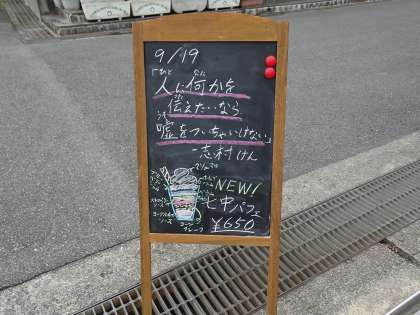 9/19
「人に何かを
ひと なに
伝えた…なら
つた
嘘をついちゃいけない」
うそ
-志村けん
NEW!
七中パフェ
¥650
ソース
ヨーグルト
ソース
コーン
フレーク